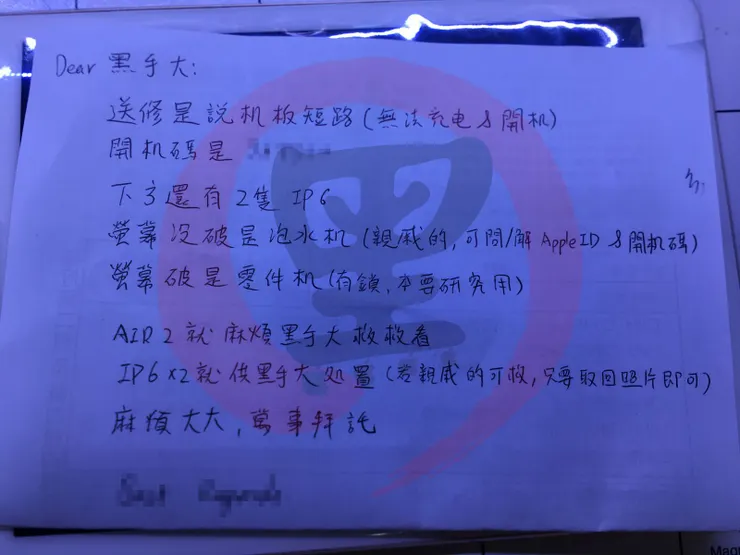 Dear 黑手大:
送修是說机板短路(無法充电&開机)
開机碼是
下方還有2隻 IP6
螢幕沒破是泡水机(親戚的,可問/解 Apple ID &開机碼)
螢幕破是零件机(有鎖,本要研究用)
AIR 2 就麻煩黑手大救救看
IP6 x2 就供黑手大処置(若親戚的可救,只要取回照片即可)
麻煩大大,萬事拜託
黑